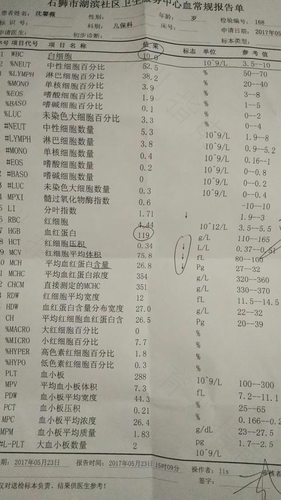 石狮市湖滨社区卫生服务中心血常规报告单
年龄: 岁 检验编号: 168
标识号: 科别: 儿保科 申请日期: 2017年05
初步诊断: 标本类型:
序号 项目 项目名称 结果 标志 单位 参考值
白细胞 10^9/L 3.5--10
%NEUT 中性细胞百分比 52.5 % 50--70
%LYMPH 淋巴细胞百分比 38.2 % 20--40
%MONO 单核细胞百分比 3.9 % 3--8
%EOS 嗜酸细胞百分比 1.9 %
%BASO 嗜碱细胞百分比 0.1 %
%LUC 未染色大细胞百分比 3.3 %
#NEUT 中性细胞数量 5.3 10^9/L
#LYMPH 淋巴细胞数量 3.8 10^9/L
#MONO 单核细胞数量 0.4 10^9/L
#EOS 嗜酸细胞数量 0.2 10^9/L
#BASO 嗜碱细胞数量 0
#LUC 未染色大细胞数量 0.3
MPXI 髓过氧化物酶指数 0.6 --10--10
LI 分叶指数 1.71 1.9--3
RBC 红细胞 4.44 10^12/L 3.5--5.5
HGB 血红蛋白 119 g/L 110--165
HCT 红细胞压积 0.34 ↓ L/L 0.37--0.51
MCV 红细胞平均体积 75.8 ↓ fL 80--100
MCH 平均血红蛋白含量 26.8 ↓ Pg 27--32
MCHC 平均血红蛋白浓度 354 g/L 320--360
CHCM 直接测定的MCHC 351 g/L 330--370
RDW 红细胞平均宽度 12 fL 11.5--14.5
HDW 血红蛋白含量分布宽度 27.0 g/L 22--32
CH 平均红细胞血红蛋白含 26.5 Pg 20--39
%MACRO 大红细胞百分比 0 %
%MICRO 小红细胞百分比 1.7 %
%HYPO 低色素红细胞百分比 1.8 %
%HYPER 高色素红细胞百分比 0.3 %
PLT 血小板 288 10^9/L 100--300
MPV 平均血小板体积 7.3 fL 7.2--11.1
PDW 血小板平均宽度 44.3 % 25--65
PCT 血小板压积 0.21 %
MPC 血小板平均浓度 26.4 g/dL 23--27.5
MPM 血小板平均质量 1.83 pg 1.7--2.5
#L-PLT 大血小板数量 2
期: 2017年05月23日 报告时间: 2017年05月23日 操作者: lls
仅对送检标本负责、结果供医生参考!